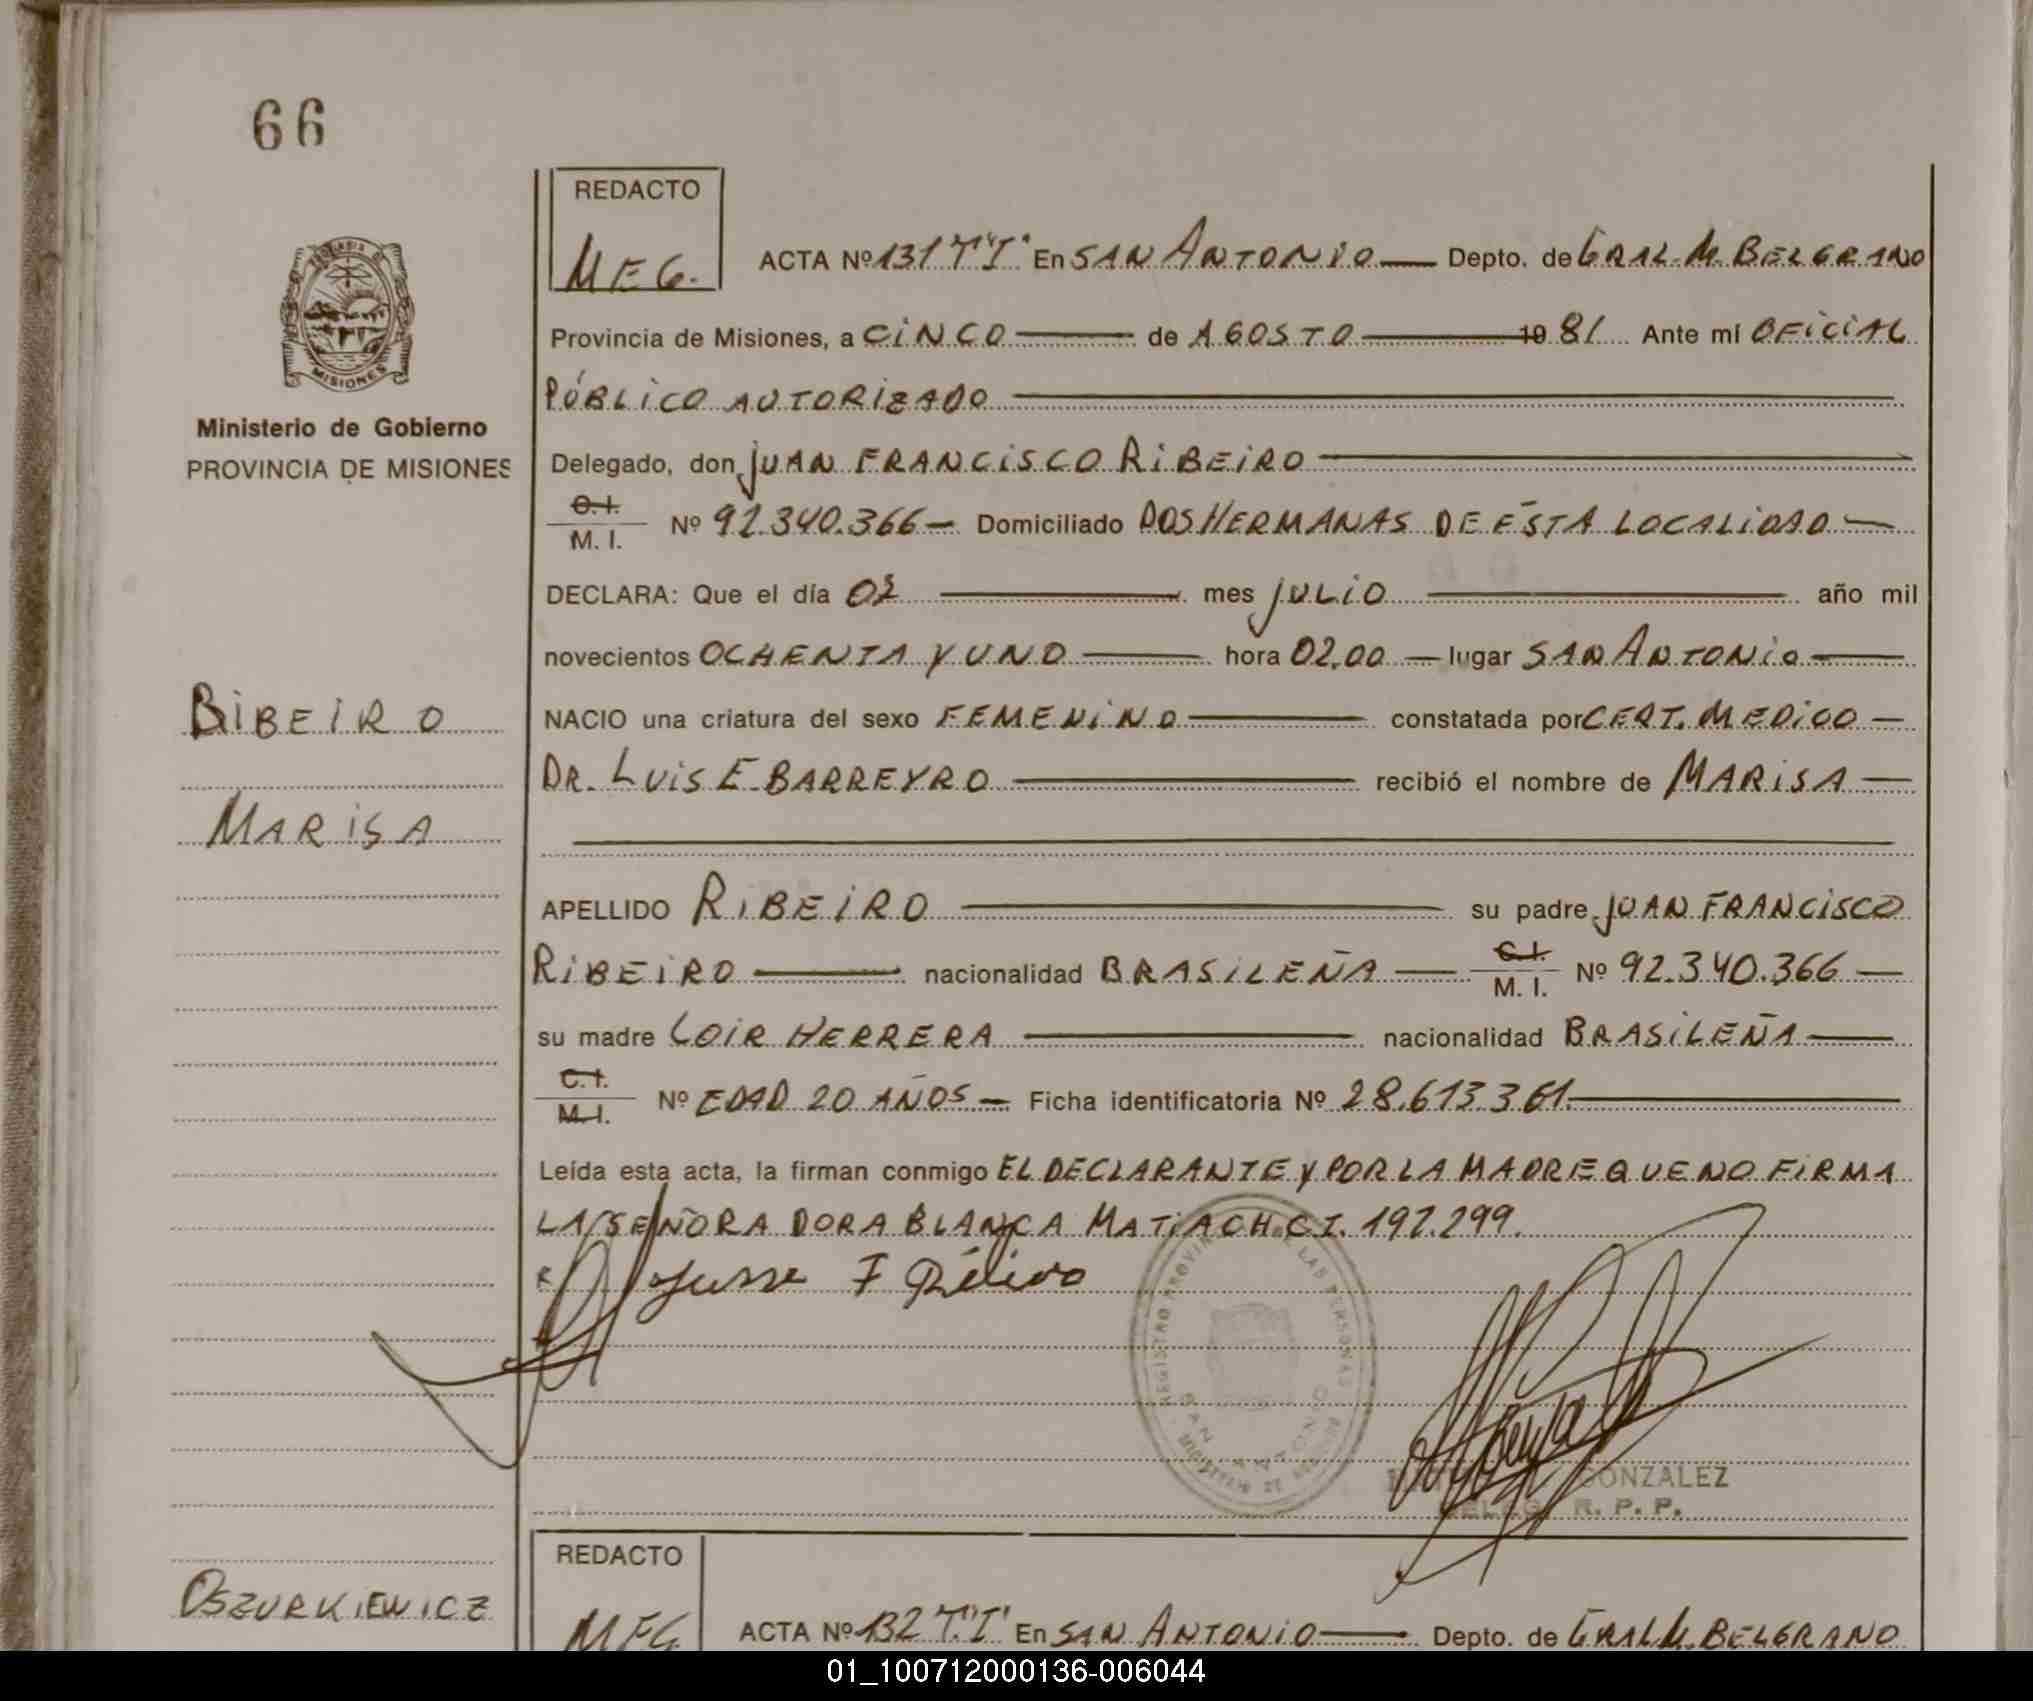 66
REDACTO
MEG.
ACTA Nº 131 "T.I" En SAN ANTONIO Depto. de GRAL. M. BELGRANO
Provincia de Misiones, a CINCO de AGOSTO 19 81 Ante mí OFICIAL
PÚBLICO AUTORIZADO
Delegado, don JUAN FRANCISCO RIBEIRO
C. I.
M. I. Nº 92.340.366 Domiciliado DOS HERMANAS DE ÉSTA LOCALIDAD
DECLARA: Que el día mes JULIO año mil
novecientos OCHENTA Y UNO hora 02,00 lugar SAN ANTONIO
NACIO una criatura del sexo FEMENINO constatada por CERT. MEDICO
DR. LUIS E. BARREYRO recibió el nombre de MARISA
APELLIDO RIBEIRO su padre JUAN FRANCISCO
RIBEIRO nacionalidad BRASILEÑA C. I.
M. I. Nº 92.340.366
su madre LOIR HERRERA nacionalidad BRASILEÑA
C. I.
M. I. Nº EDAD 20 AÑOS Ficha identificatoria Nº 28.613.361.
Leída esta acta, la firman conmigo EL DECLARANTE Y POR LA MADRE QUE NO FIRMA
LA SEÑORA DORA BLANCA MATIACH C.I. 192.299.
REGISTRO PROVINCIAL DE LAS PERSONAS
SAN ANTONIO
GONZALEZ
DELEG. R. P. P.
MISIONES
Ministerio de Gobierno
PROVINCIA DE MISIONES
RIBEIRO
MARISA
OSZURKIEWICZ
REDACTO
MEG
ACTA Nº 132 "T.I" En SAN ANTONIO Depto. de GRAL M. BELGRANO
01_100712000136-006044